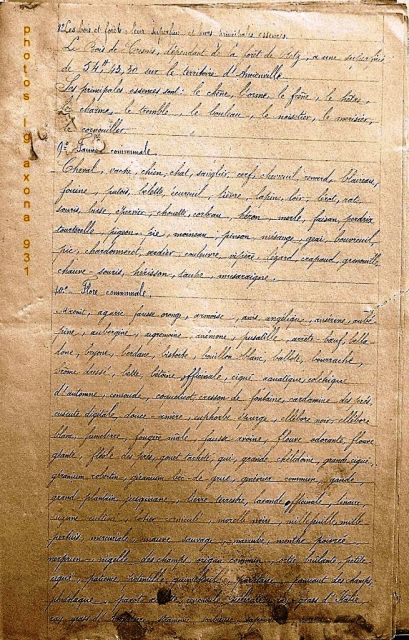 8° Les bois et forêts, leur superficie et leurs principales essences.
Le Bois de Tresnes, dépendant de la forêt de Retz, a une superficie
de 54 43, 30 sur le territoire d'
Les principales essences sont : le chêne, l'orme, le frêne, le hêtre,
le charme, le tremble, le bouleau, le noisetier, le merisier,
le cornouiller.
9° Faune communale.
Cheval, vache, chien, chat, sanglier, cerf, chevreuil, renard, blaireau,
fouine, putois, belette, écureuil, lièvre, lapin, loir, lérot, rat,
souris, buse, épervier, chouette, corbeau, héron, merle, faisan, perdrix,
tourterelle, pigeon, pie, moineau, pinson, mésange, geai, bouvreuil,
pic, chardonneret, verdier, couleuvre, vipère, lézard, crapaud, grenouille,
chauve-souris, hérisson, taupe, musaraigne.
10° Flore communale.
Aconit, agaric fausse oronge, armoise, anis, angélique, anserine, aubé
pine, aubergine, aigremoine, anémone, pulsatille, arrête-bœuf, bella
done, bryone, bardane, bistorte, bouillon blanc, ballote, bourrache,
brome dressé, bétoine officinale, ciguë aquatique, colchique
d'automne, consoude, coquelicot, cresson de fontaine, cardamine des prés,
cuscute, digitale, douce-amère, euphorbe épurge, ellébore noir, ellébore
blanc, fumeterre, fougère mâle, fausse avoine, flouve odorante, flouve
fléole des prés, gouet tacheté, gui, grande chélidoine, grande ciguë,
géranium robertin, géranium bec de grue, genièvre commun, gaude,
grand plantain, jusquiame, lierre terrestre, lavande officinale, linaire,
lotier corniculé, morelle noire, millefeuille, mille
pertuis, mercuriale, mauve sauvage, menthe poivrée,
nerprun, nigelle des champs, origan commun, ortie brûlante, petite
ciguë, patience, quintefeuille, des champs,
photo lg axona 931